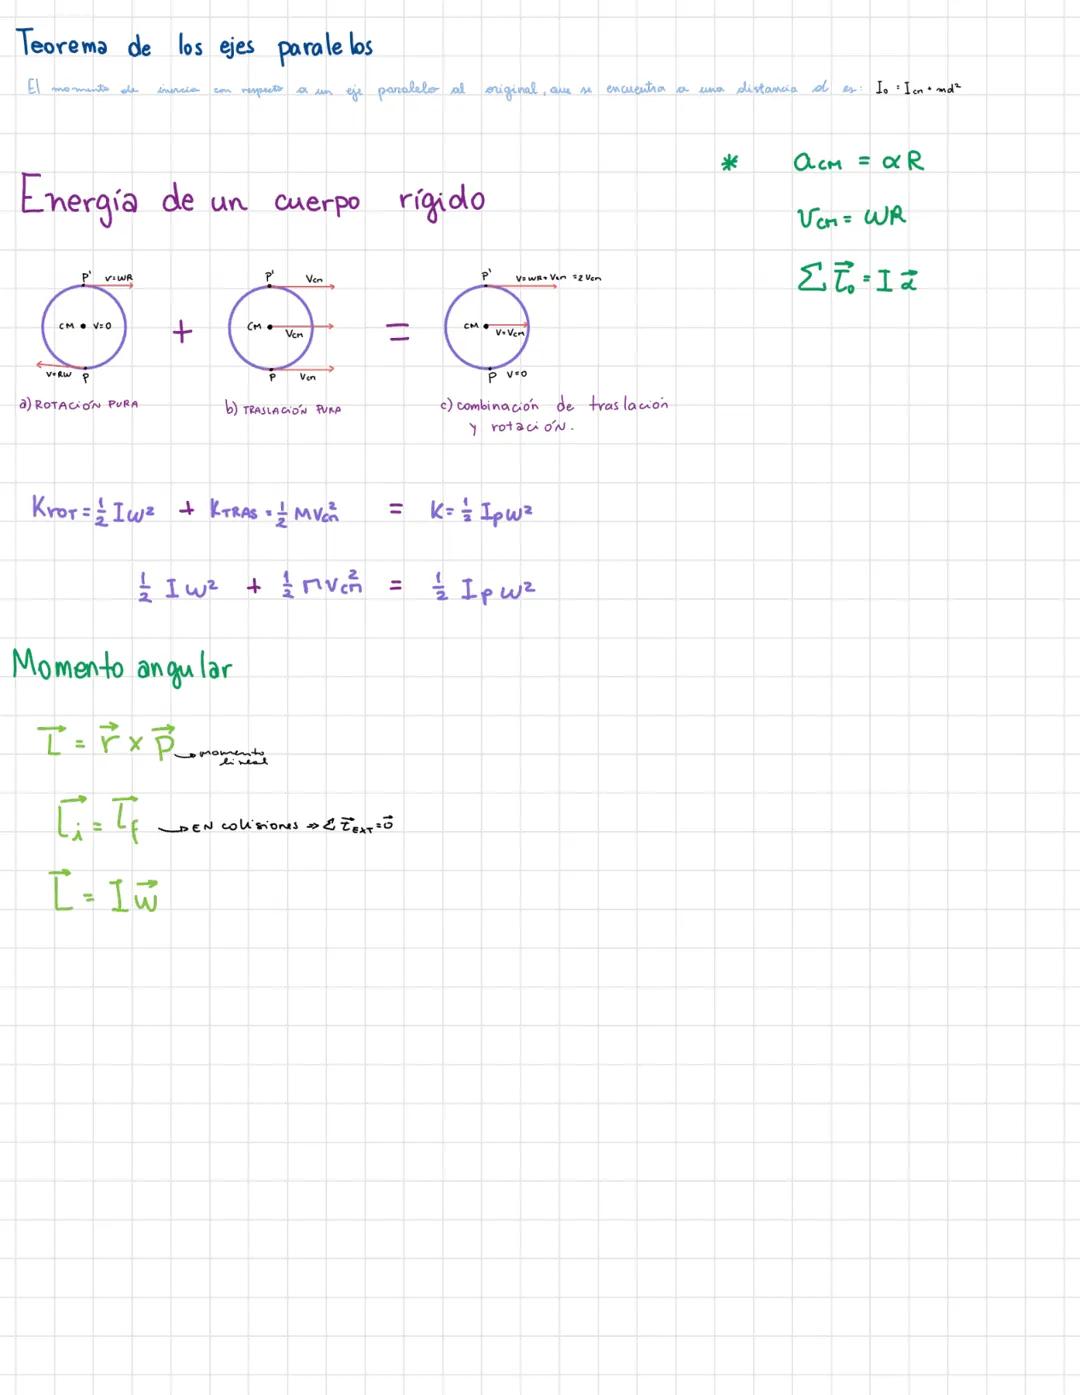 Teorema de los ejes paralelos
El momento de inercia con respecto a un eje paralelo al original, que se encuentra a una distancia d es: I₀ = Icm + md²
* acm = αR
Energía de un cuerpo rígido
Vcm = WR
Σ τ⃗₀ = I α⃗
P' V=WR
CM V=0
V=RW P
+
P' Vcm
CM Vcm
P Vcm
=
P' V=WR+Vcm =2Vcm
CM V=Vcm
P V=0
a) ROTACIÓN PURA
b) TRASLACIÓN PURA
c) combinación de traslación
y rotación.
Krot = ½ Iw² + KTRAS = ½ MVcm² = K = ½ Ipw²
½ Iw² + ½ MVcm² = ½ Ipw²
Momento angular
L⃗ = r⃗ x p⃗ → momento
lineal
L⃗i = L⃗f → EN colisiones ⇒ Σ τ⃗EXT = 0⃗
L⃗ = I w⃗